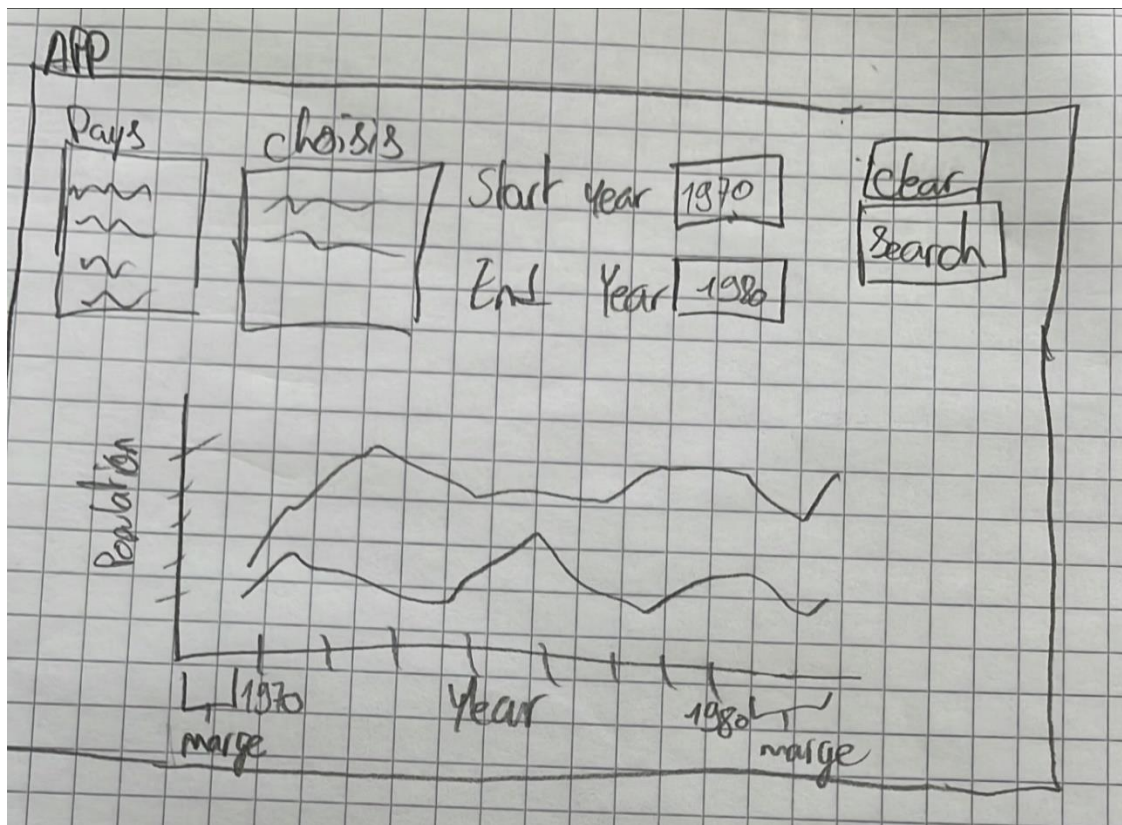 APP
Pays
choisis
Start year 1970
clear
search
End Year 1980
Population
1970
Year
1980
marge
marge